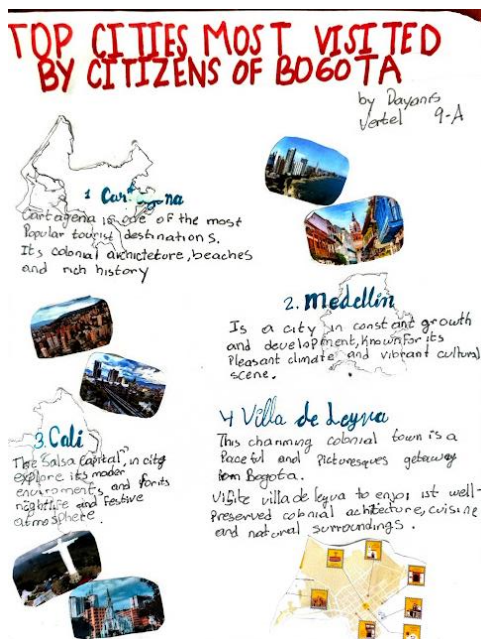 TOP CITIES MOST VISITED
BY CITIZENS OF BOGOTA
by Dayanis
Vertel 9-A
1 Cartagena
Cartagena is one of the most
Popular tourist destinations.
Its colonial architeture, beaches
and rich history
2. Medellín
Is a city in constant growth
and development, Known For its
Pleasant climate and vibrant cultural
scene.
3. Cali
The "Salsa Capital", in city
explore its moder
enviroments and forits
nightlife and Festive
atmosphere.
4 Villa de Leyva
This charming colonial town is a
Paceful and Picturesques getaway
Bogota.
Visite villa de leyva to enjoi ist well-
Preserved colonial achitecture, cuisine
and natural surroundings.